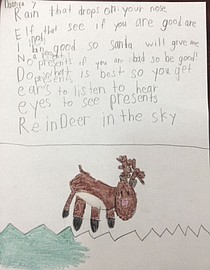 Rain that drops on your nose
Elfs that see if you are good are
I been good so santa will give me
No presents if you are bad so be good!
Do what is best so you get
ears to listen to hear
eyes to see presents
ReinDeer in the sky